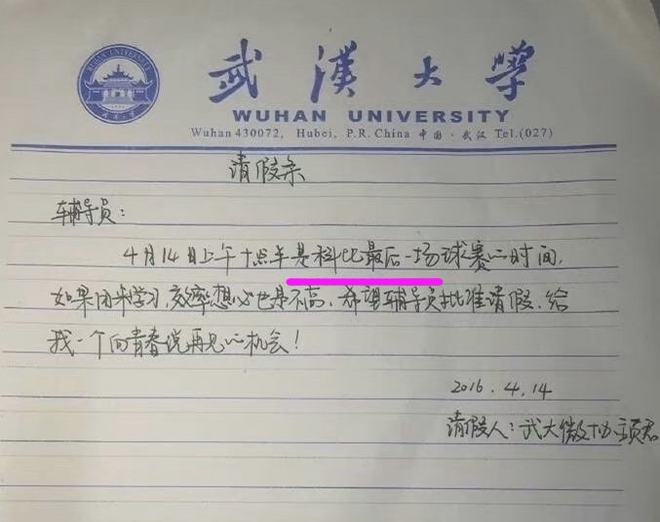 武漢大學
WUHAN UNIVERSITY
Wuhan 430072, Hubei, P.R. China 中国·武汉 Tel.(027)
请假条
辅导员：
4月14日上午十点半是科比最后一场球赛的时间，
如果用来学习，效率想必也是不高，希望辅导员批准请假，给
我一个向青春说再见的机会！
2016.4.14
请假人：武大微协